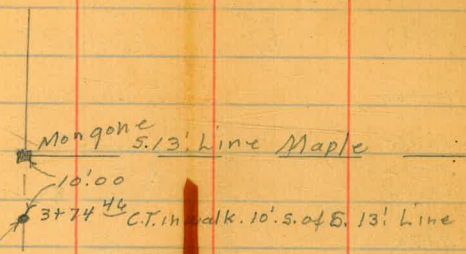 Mon gone S. 13' Line Maple
10'.00
3+74 46 C.T. in walk. 10' S. of S. 13' Line